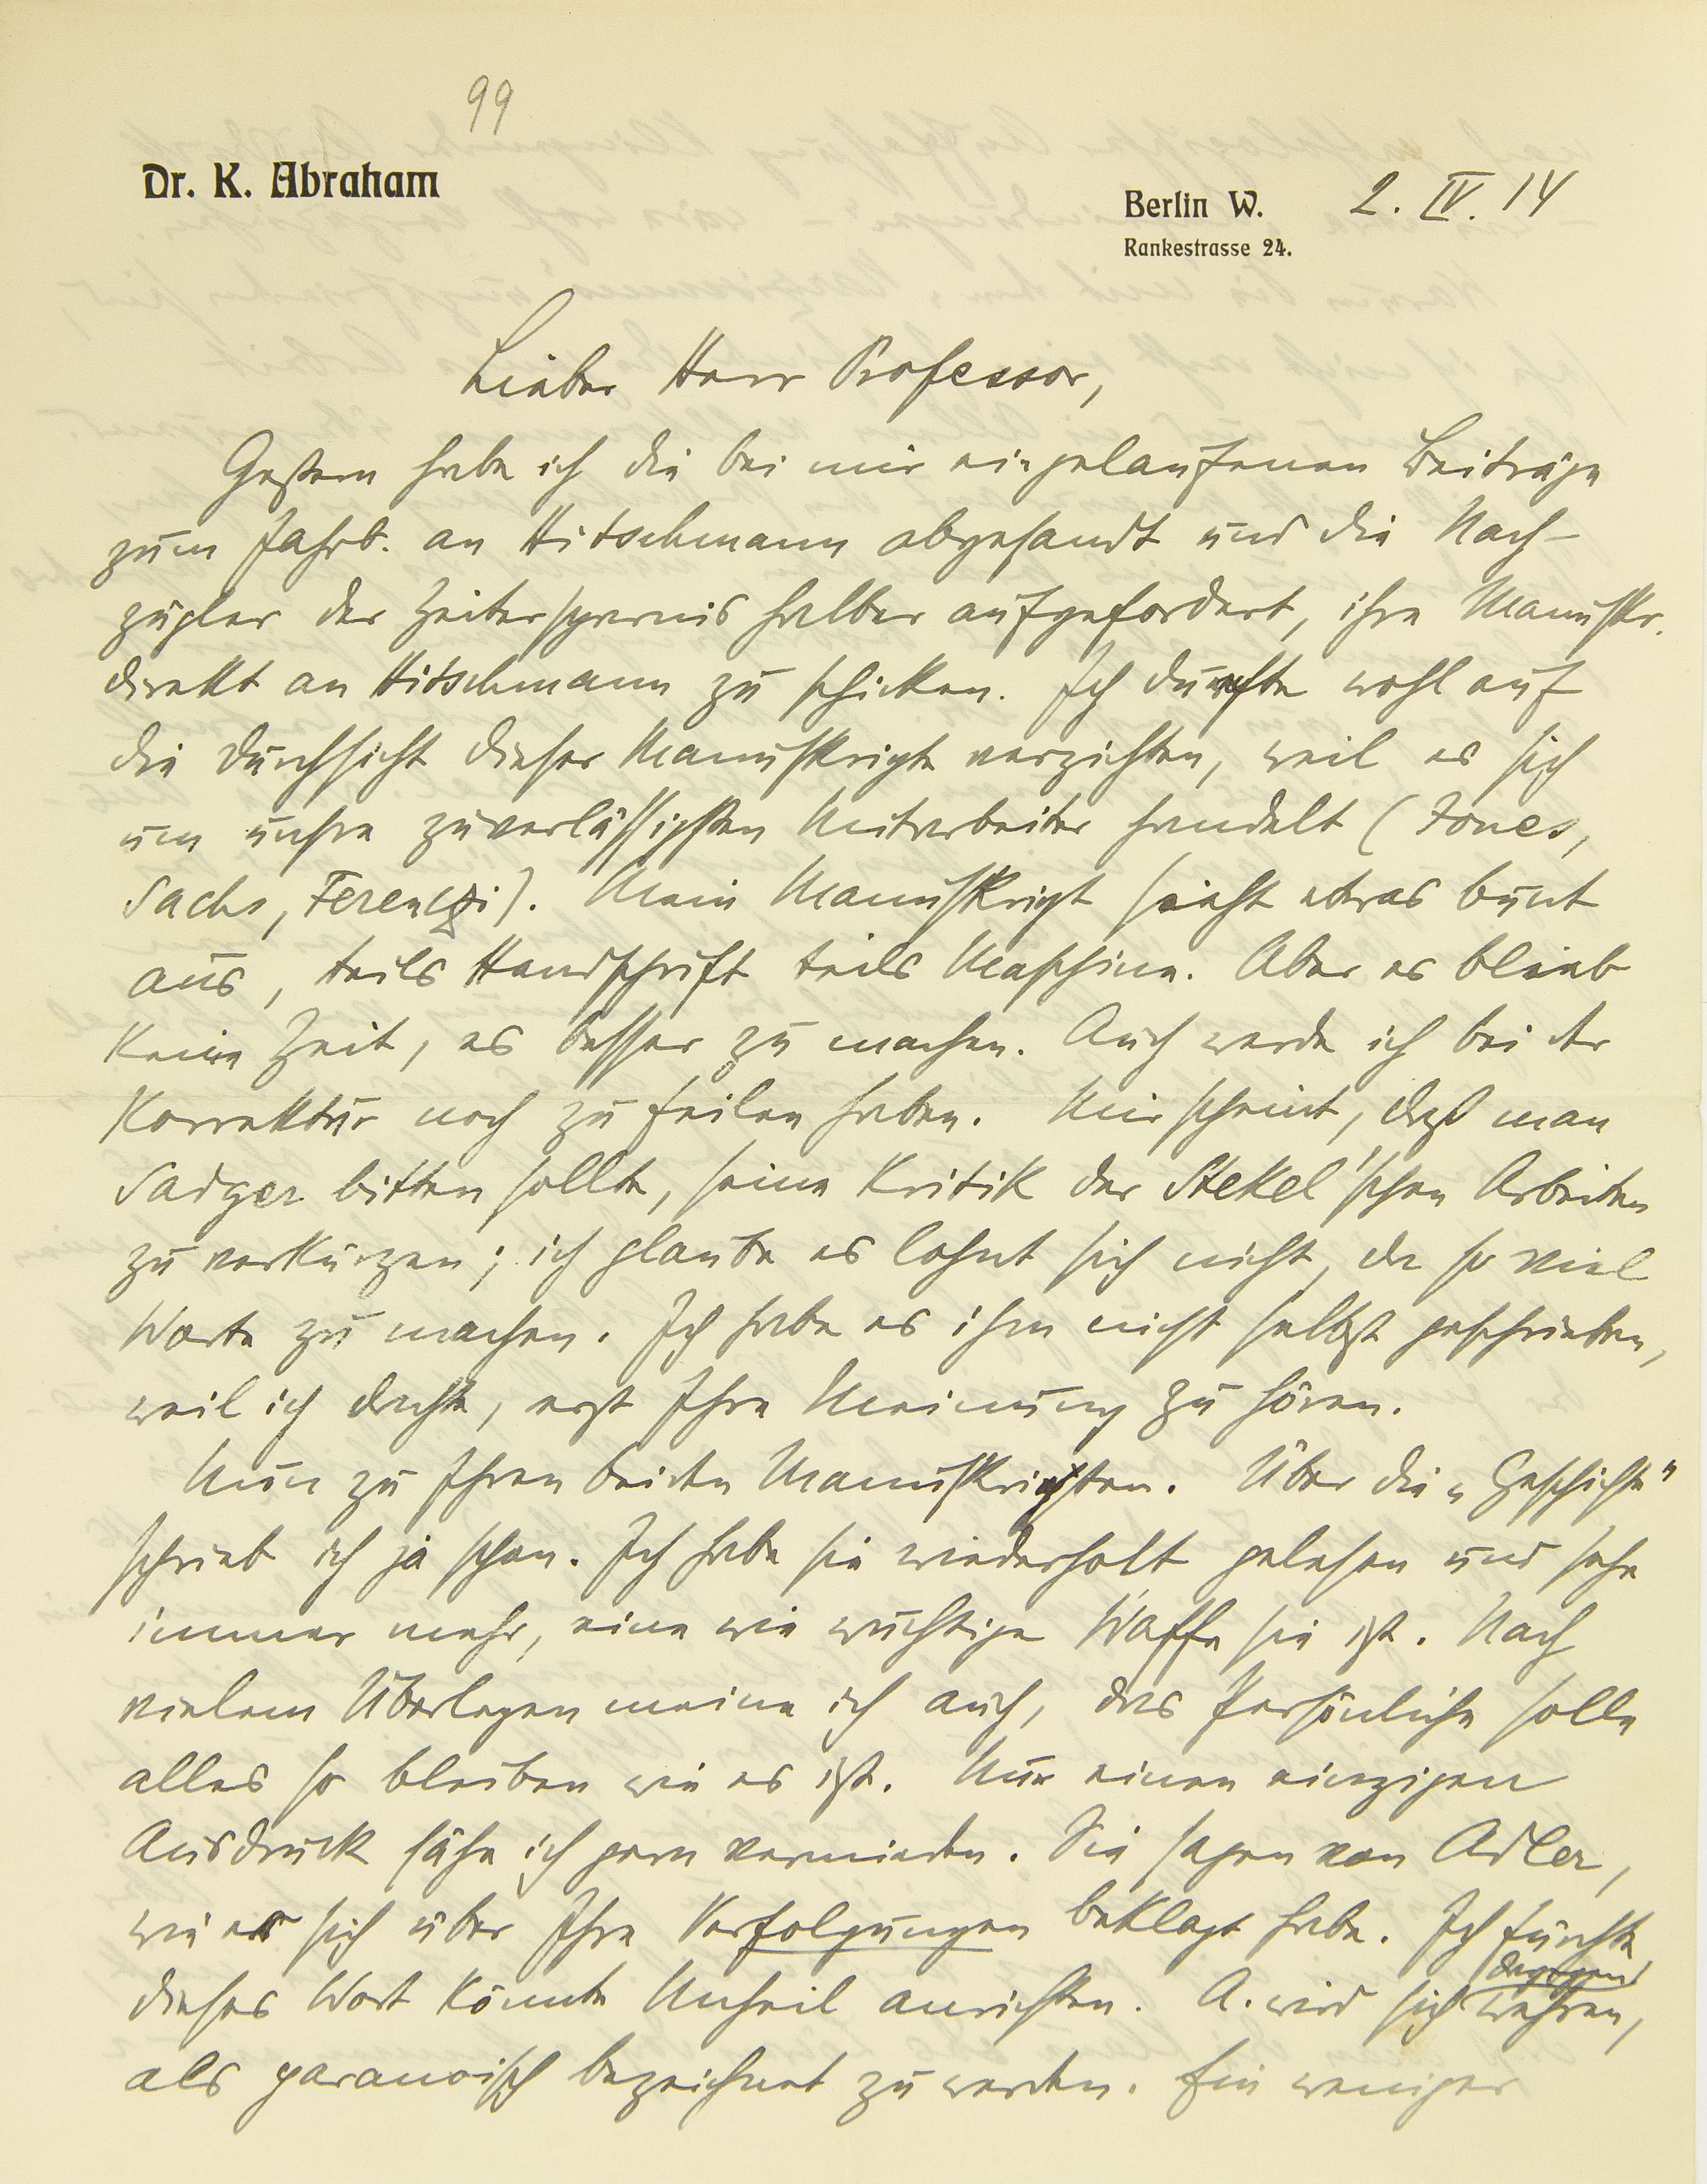 99
Dr. K. Abraham
Berlin W. 2. IV. 14
Rankestrasse 24.
Lieber Herr Professor,
Gestern habe ich die bei mir eingelaufenen Beiträge
zum Jahrb. an Hitschmann abgesandt und die Nach-
zügler der Zeitersparnis halber aufgefordert, ihre Manuskr.
direkt an Hitschmann zu schicken. Ich durfte wohl auf
die Durchsicht dieser Manuskripte verzichten, weil es sich
um unsre zuverlässigsten Mitarbeiter handelt (Jones,
Sachs, Ferenczi). Mein Manuskript sieht etwas bunt
aus, teils Handschrift teils Maschine. Aber es blieb
keine Zeit, es besser zu machen. Auch werde ich bei der
Korrektur noch zu feilen haben. Mir scheint, daß man
Sadger bitten sollte, seine Kritik der Stekel'schen Arbeiten
zu verkürzen; ich glaube es lohnt sich nicht, da so viel
Worte zu machen. Ich habe es ihm nicht selbst geschrieben,
weil ich dachte, erst Ihre Meinung zu hören.
Nun zu Ihren beiden Manuskripten. Über die „Geschichte"
schrieb ich ja schon. Ich habe sie wiederholt gelesen und sehe
immer mehr, eine wie wuchtige Waffe sie ist. Nach
vielem Überlegen meine ich auch, das Persönliche solle
alles so bleiben wie es ist. Nur einen einzigen
Ausdruck sähe ich gern vermieden. Sie sagen von Adler,
wie er sich über Ihre Verfolgungen beklagt habe. Ich fürchte,
dieses Wort könnte Unheil anrichten. A. wird sich dagegen wehren,
als paranoisch bezeichnet zu werden. Ein weniger